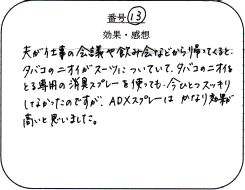 番号 13
効果・感想
夫が仕事の会議や飲み会などから帰ってくると、
タバコのニオイがスーツについていて、タバコのニオイを
とる専用の消臭スプレーを使っても、今ひとつスッキリ
しなかったのですが、ADXスプレーは かなり効果が
高いと思いました。